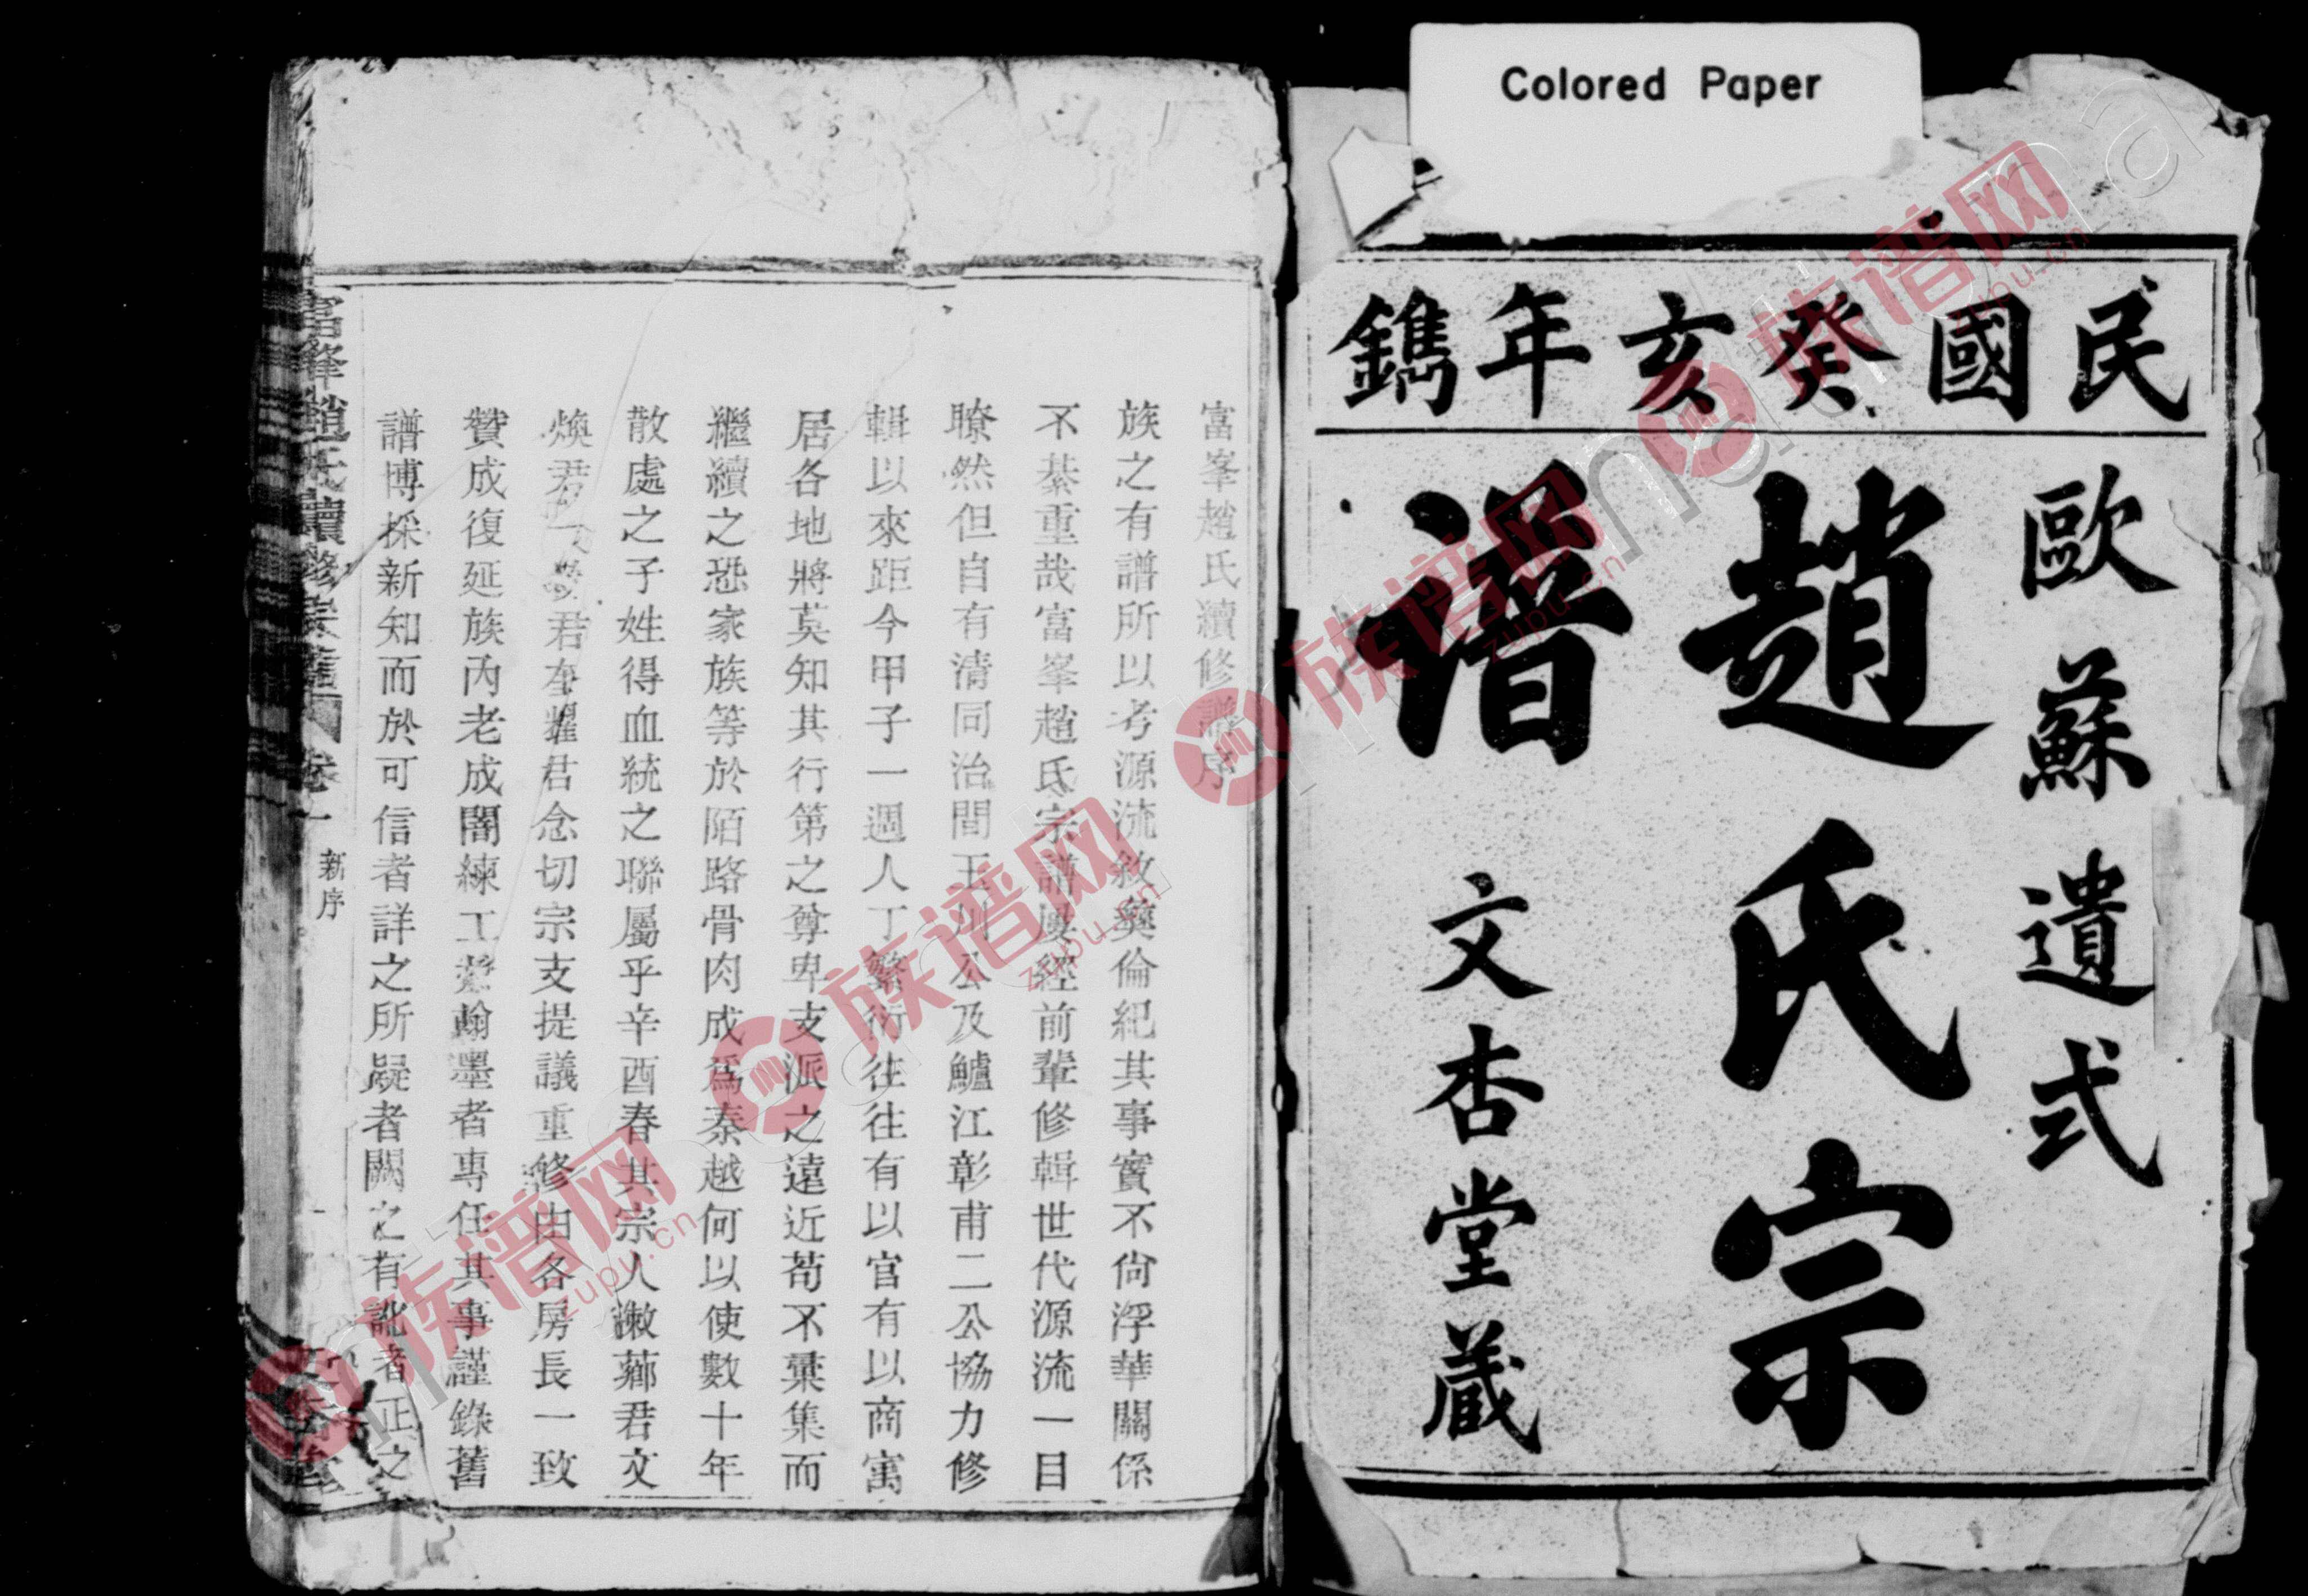 Colored Paper
民國癸亥年鐫
歐蘇遺式
趙氏宗
譜
文杏堂藏
富峯趙氏續修譜序
族之有譜所以考源流敘彝倫紀其事實不尙浮華關係
不綦重哉富峯趙氏宗譜屢經前輩修輯世代源流一目
瞭然但自有清同治間玉川公及鱸江彰甫二公協力修
輯以來距今甲子一週人丁繁衍往往有以官有以商寓
居各地將莫知其行第之尊卑支派之遠近苟不彙集而
繼續之恐家族等於陌路骨肉成爲秦越何以使數十年
散處之子姓得血統之聯屬乎辛酉春其宗人漱薌君文
煥君君奎耀君念切宗支提議重修由各房長一致
贊成復延族內老成闇練工翰墨者專任其事謹錄舊
譜博採新知而於可信者詳之所疑者闕之有訛者正之
富峯趙氏續修宗譜 卷一 新序
族谱网 zupu.cn
族谱网 zupu.cn
族谱网 zupu.cn
族谱网 zupu.cn